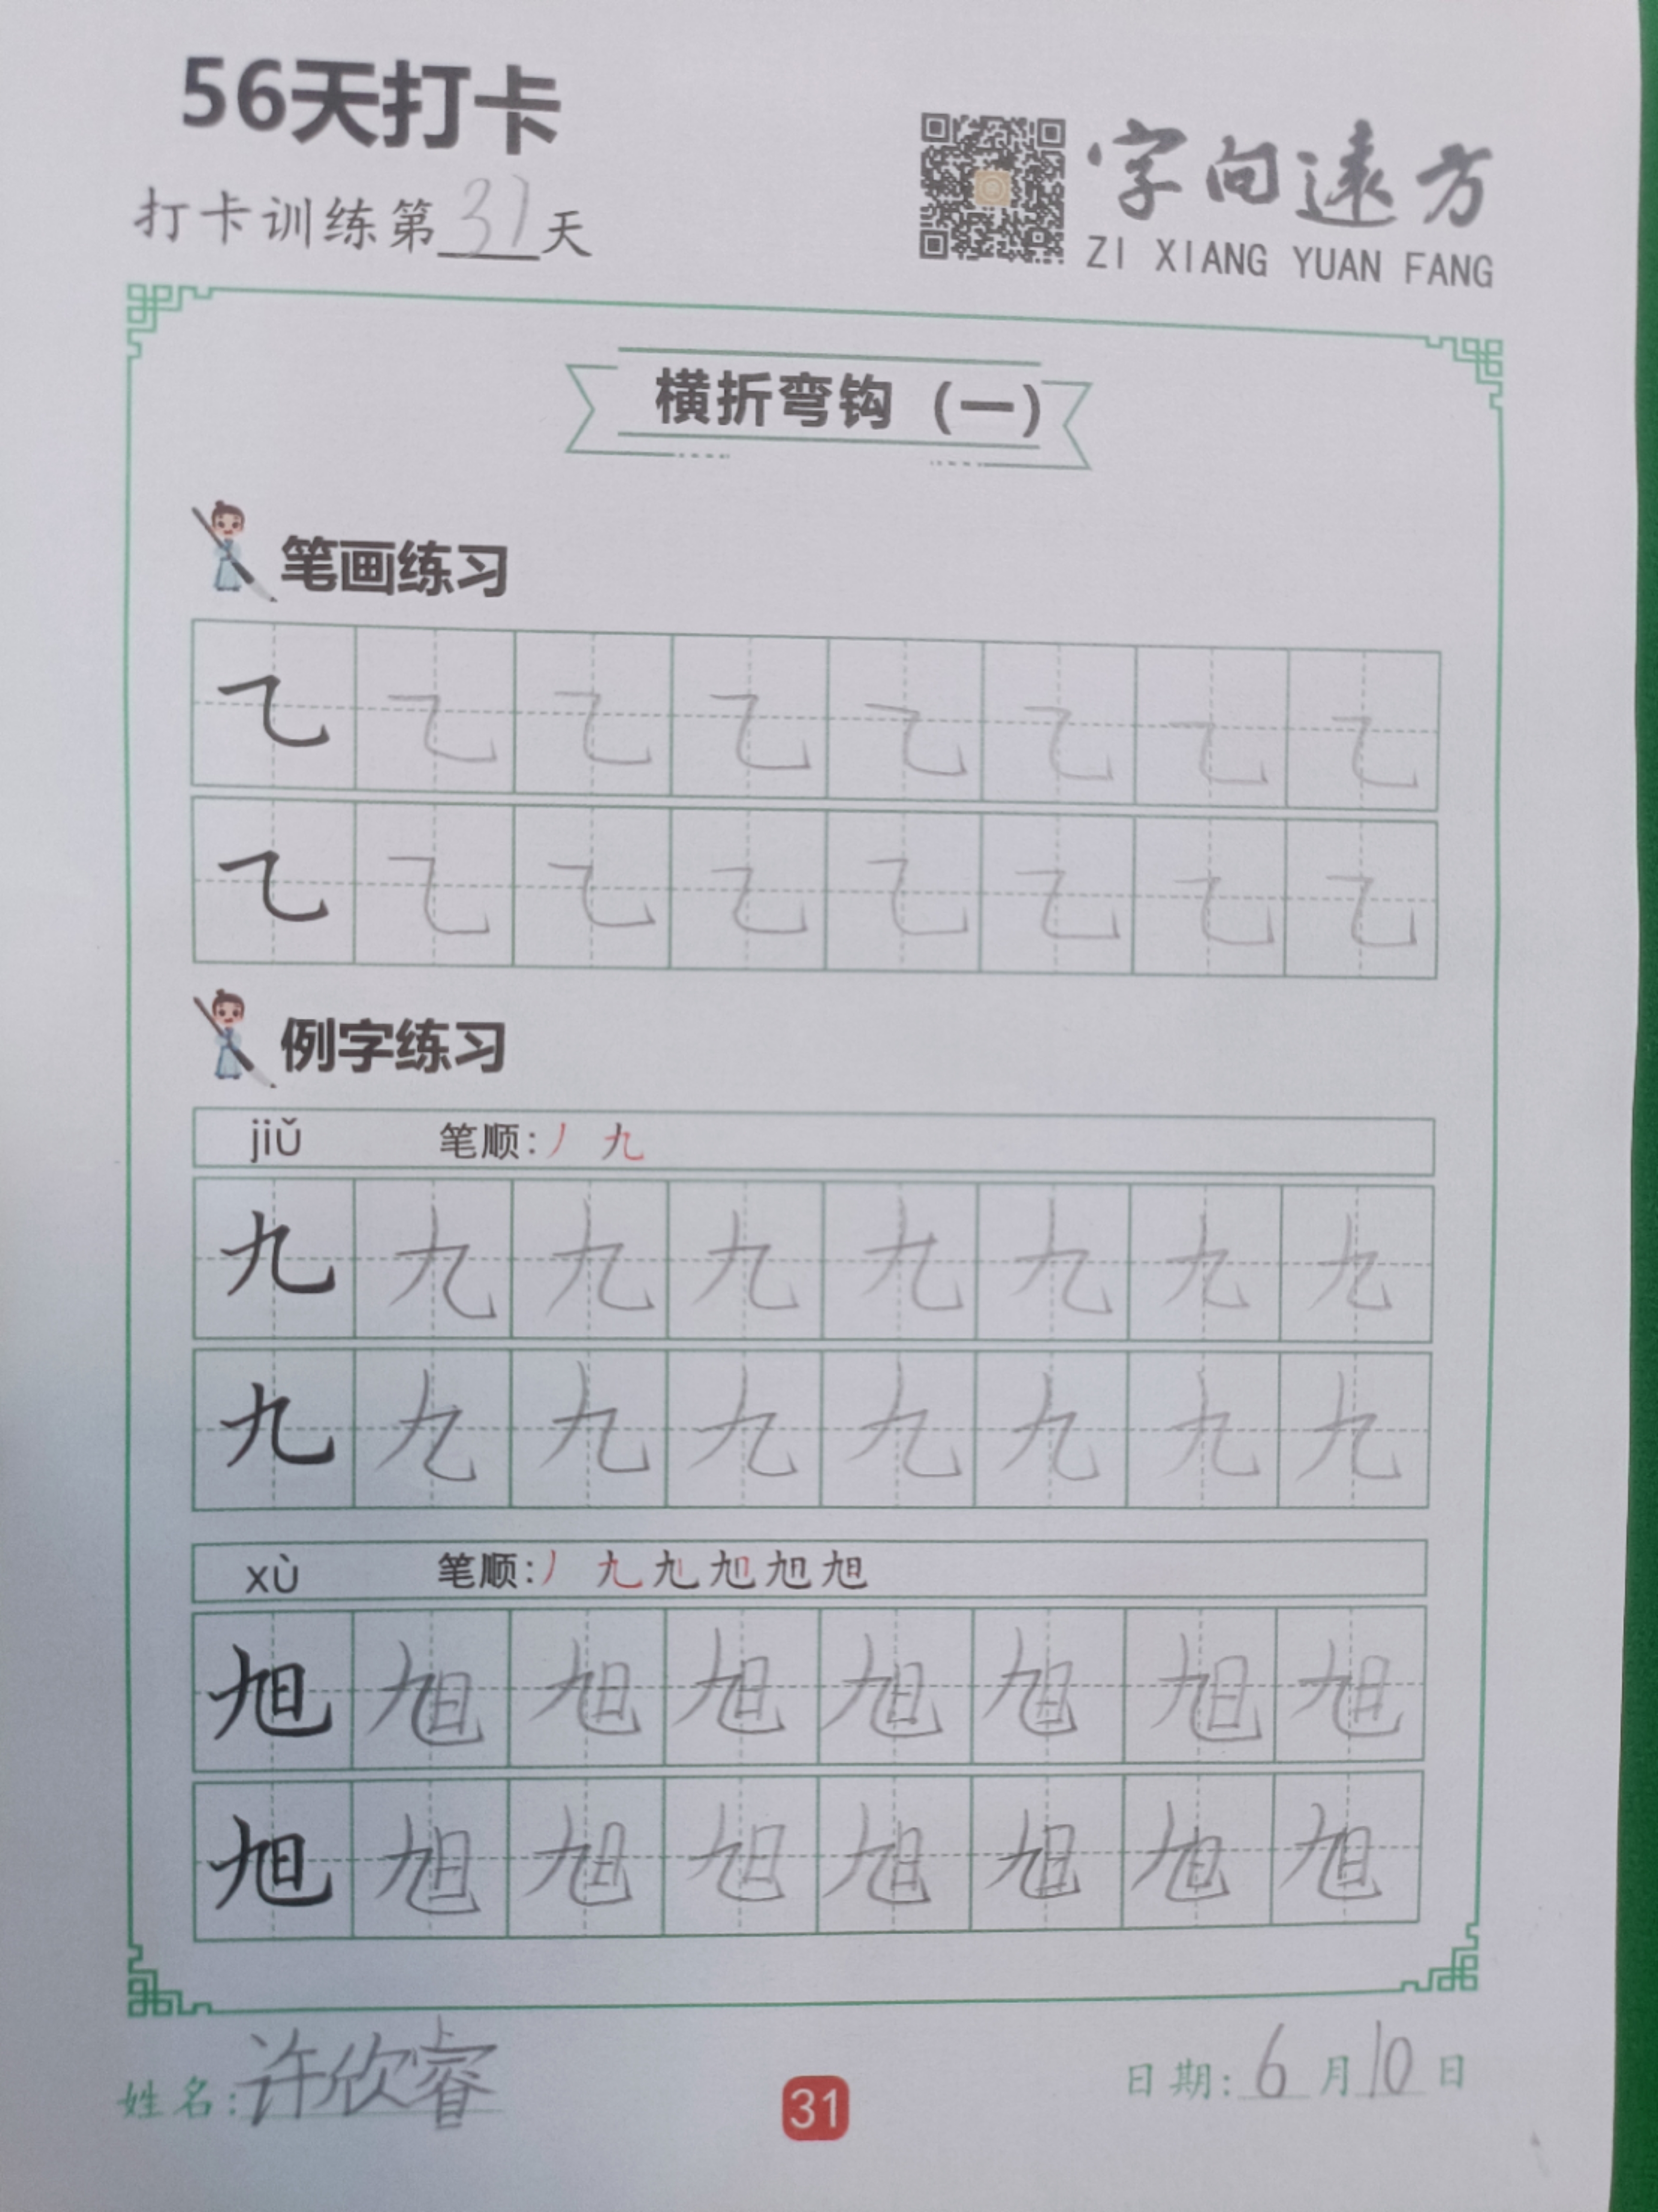 56天打卡
打卡训练第31天
字向遠方
ZI XIANG YUAN FANG
横折弯钩（一）
笔画练习
㇈ ㇈ ㇈ ㇈ ㇈ ㇈ ㇈ ㇈
㇈ ㇈ ㇈ ㇈ ㇈ ㇈ ㇈ ㇈
例字练习
jiǔ 笔顺：丿 九
九 九 九 九 九 九 九 九
九 九 九 九 九 九 九 九
xù 笔顺：丿 九 九 旭 旭 旭
旭 旭 旭 旭 旭 旭 旭 旭
旭 旭 旭 旭 旭 旭 旭 旭
姓名：许欣睿
31
日期：6月10日